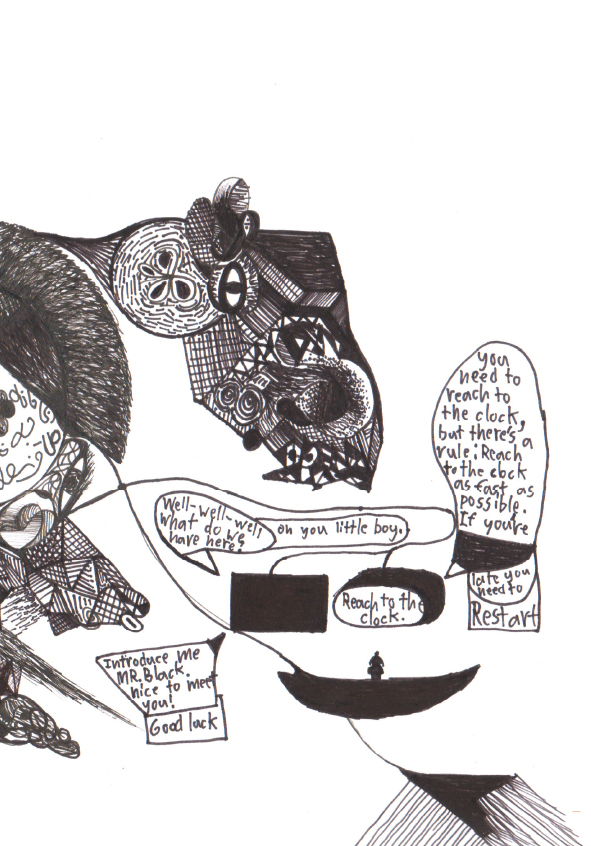 you
need to
reach to
the clock,
but there's a
rule: Reach
to the clock
as fast as
possible.
If you're
late you
need to
Restart
Well-well-well
what do we
have here?
oh you little boy.
Reach to the
clock.
Introduce me
MR. Black.
nice to meet
you!
Good luck